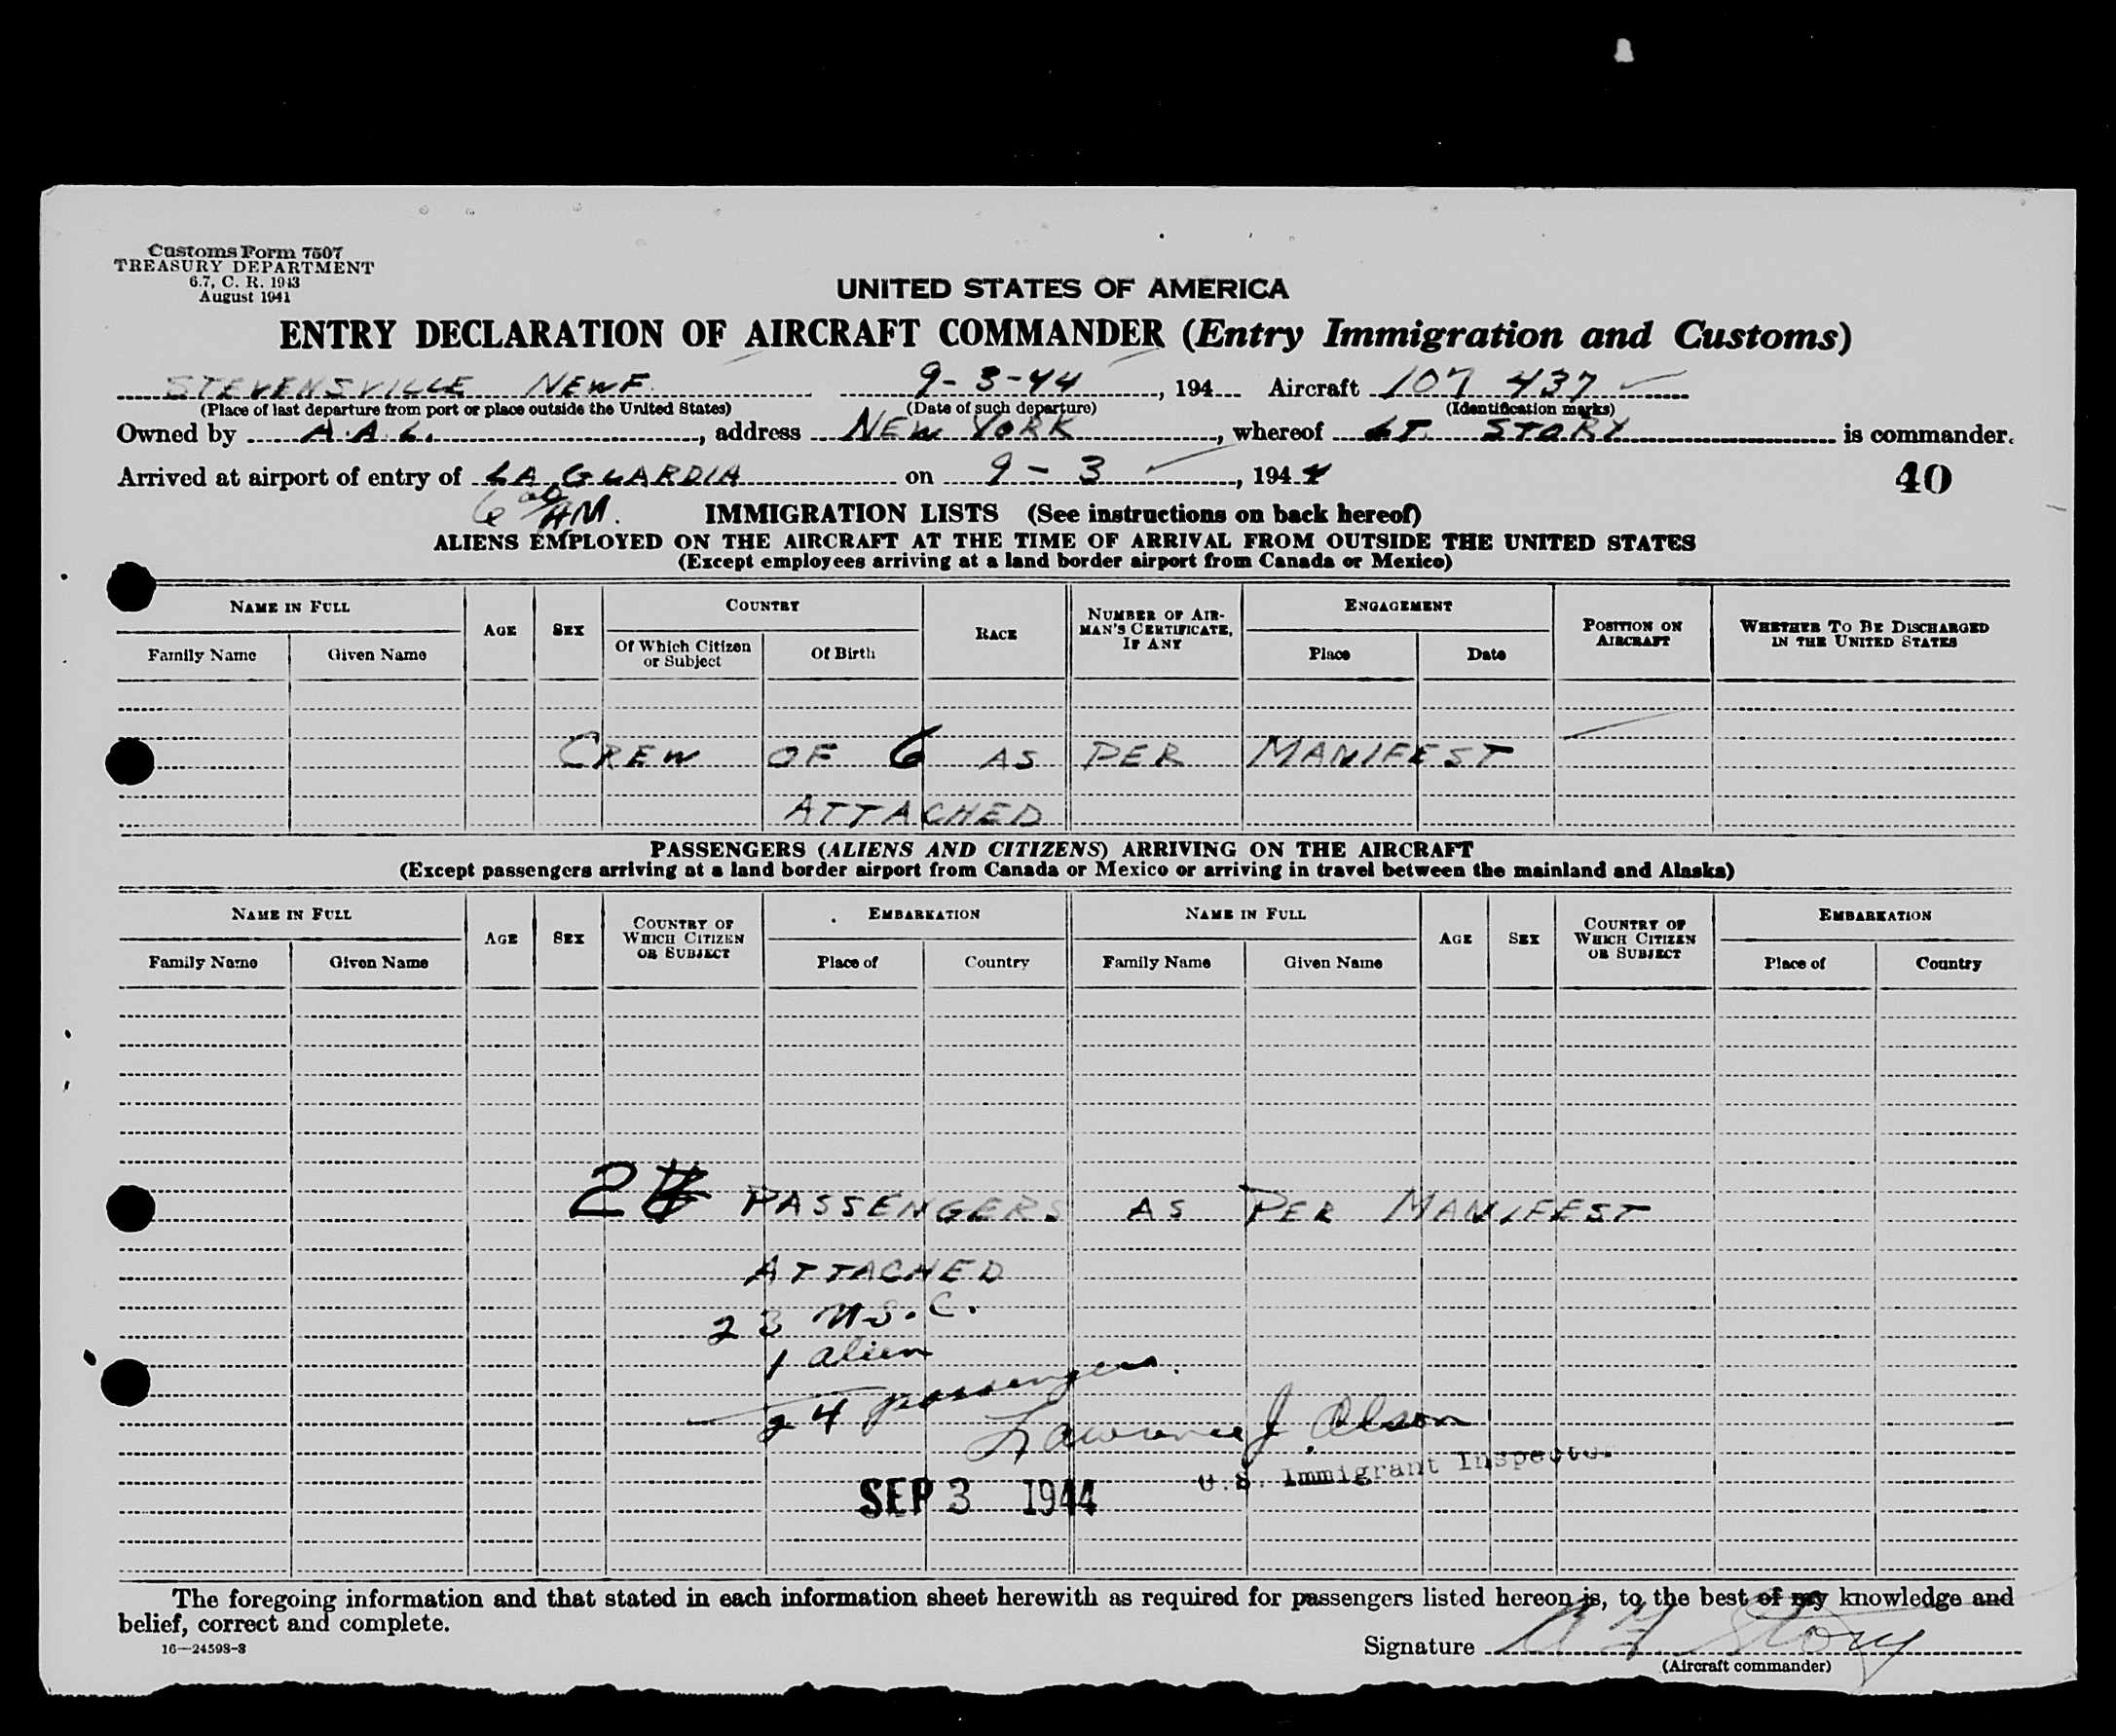 Customs Form 7507
TREASURY DEPARTMENT
6.7, C. R. 1943
August 1941
UNITED STATES OF AMERICA
ENTRY DECLARATION OF AIRCRAFT COMMANDER (Entry Immigration and Customs)
STEVENSVILLE NEWF. 9-3-44, 194 Aircraft 107 437
(Place of last departure from port or place outside the United States) (Date of such departure) (Identification marks)
Owned by A.A.L., address NEW YORK, whereof LT. STORY is commander.
Arrived at airport of entry of LA GUARDIA on 9-3, 1944
40
6 00 AM.
IMMIGRATION LISTS (See instructions on back hereof)
ALIENS EMPLOYED ON THE AIRCRAFT AT THE TIME OF ARRIVAL FROM OUTSIDE THE UNITED STATES
(Except employees arriving at a land border airport from Canada or Mexico)
NAME IN FULL AGE SEX COUNTRY RACE NUMBER OF AIRMAN'S CERTIFICATE, IF ANY ENGAGEMENT POSITION ON AIRCRAFT WHETHER TO BE DISCHARGED IN THE UNITED STATES
Family Name Given Name Of Which Citizen or Subject Of Birth Place Date
CREW OF 6 AS PER MANIFEST
ATTACHED
PASSENGERS (ALIENS AND CITIZENS) ARRIVING ON THE AIRCRAFT
(Except passengers arriving at a land border airport from Canada or Mexico or arriving in travel between the mainland and Alaska)
NAME IN FULL AGE SEX COUNTRY OF WHICH CITIZEN OR SUBJECT EMBARKATION NAME IN FULL AGE SEX COUNTRY OF WHICH CITIZEN OR SUBJECT EMBARKATION
Family Name Given Name Place of Country Family Name Given Name Place of Country
PASSENGERS AS PER MANIFEST
ATTACHED
23 U.S.C.
1 alien
24 passengers.
Lawrence J. Olson
U.S. Immigrant Inspector
SEP 3 1944
The foregoing information and that stated in each information sheet herewith as required for passengers listed hereon is, to the best of my knowledge and
belief, correct and complete.
16—24593-3
Signature A F Story
(Aircraft commander)